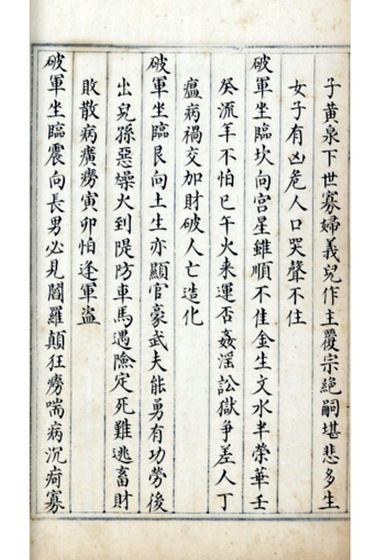 子黃泉下世寡婦義兒作主覆宗絕嗣堪悲多生
女子有凶危人口哭聲不住
破軍坐臨坎向宮星雖順不佳金生文水半榮華壬
癸流羊不怕巳午火来運否姦滛訟獄爭差人丁
瘟病禍交加財破人亡造化
破軍坐臨艮向土生亦顯官豪武夫能勇有功勞後
出兒孫惡燥火到隄防車馬遇險定死難逃畜財
敗散病癀癆寅卯怕逢軍盗
破軍坐臨震向長男必見閻羅顛狂癆喘病沉疴寡